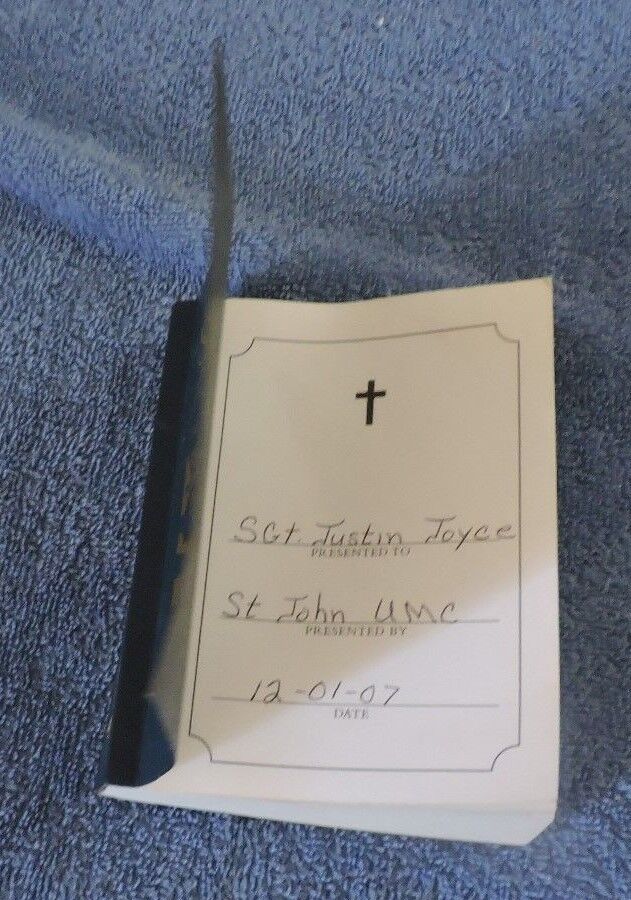 SGt. Justin Joyce
PRESENTED TO
St John UMC
PRESENTED BY
12-01-07
DATE